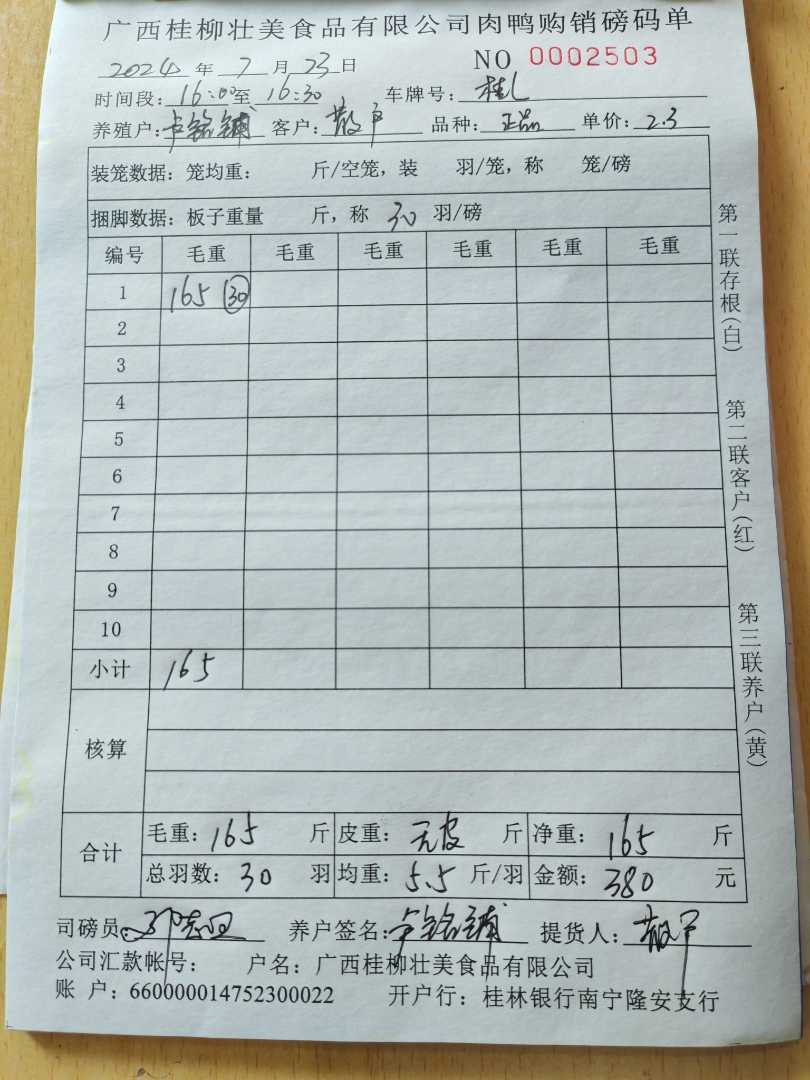 广西桂柳壮美食品有限公司肉鸭购销磅码单
2024 年 7 月 23 日 NO 0002503
时间段: 16:00 至 16:30 车牌号: 桂L
养殖户: 卢铭铺 客户: 散户 品种: 正品 单价: 2.3
装笼数据: 笼均重: 斤/空笼, 装 羽/笼, 称 笼/磅
捆脚数据: 板子重量 斤, 称 30 羽/磅
编号 毛重 毛重 毛重 毛重 毛重 毛重
1 165 30
2
3
4
5
6
7
8
9
10
小计 165
核算
合计 毛重: 165 斤 皮重: 无皮 斤 净重: 165 斤
总羽数: 30 羽 均重: 5.5 斤/羽 金额: 380 元
司磅员: 养户签名: 卢铭铺 提货人: 散户
公司汇款帐号: 户名: 广西桂柳壮美食品有限公司
账 户: 660000014752300022 开户行: 桂林银行南宁隆安支行
第一联存根(白)
第二联客户(红)
第三联养户(黄)